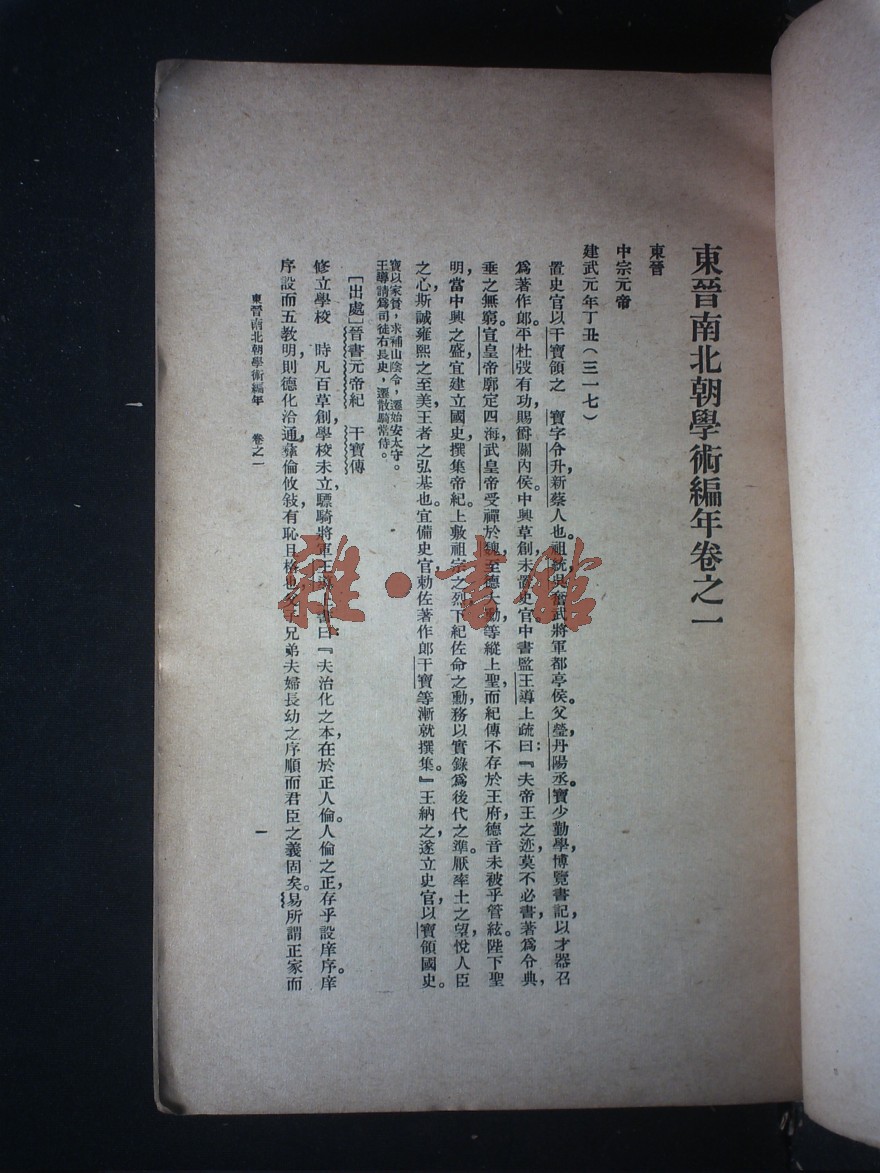 東晉南北朝學術編年卷之一
東晉
中宗元帝
建武元年丁丑(三一七)
置史官以干寶領之 寶字令升,新蔡人也。祖統,吳奮武將軍都亭侯。父瑩,丹陽丞。寶少勤學,博覽書記,以才器召
爲著作郎。平杜弢有功,賜爵關內侯。中興草創,未置史官,中書監王導上疏曰:『夫帝王之迹,莫不必書,著爲令典,
垂之無窮。宣皇帝廓定四海,武皇帝受禪於魏,至德大勳,等縱上聖,而紀傳不存於王府,德音未被乎管絃。陛下聖
明,當中興之盛,宜建立國史,撰集帝紀。上敷祖宗之烈,下紀佐命之勳,務以實錄,爲後代之準。厭率土之望,悅人臣
之心,斯誠雍熙之至美,王者之弘基也。宜備史官,勅佐著作郎干寶等漸就撰集。』王納之,遂立史官,以寶領國史。
寶以家貧,求補山陰令,遷始安太守。
王導請爲司徒右長史,遷散騎常侍。
[出處]晉書元帝紀 干寶傳
修立學校 時凡百草創,學校未立,驃騎將軍王導上書曰:『夫治化之本,在於正人倫。人倫之正,存乎設庠序。庠
序設而五教明,則德化洽通,彝倫攸敍,有恥且格也。父子兄弟夫婦長幼之序順,而君臣之義固矣。易所謂正家而
東晉南北朝學術編年 卷之一
一
雜·書館